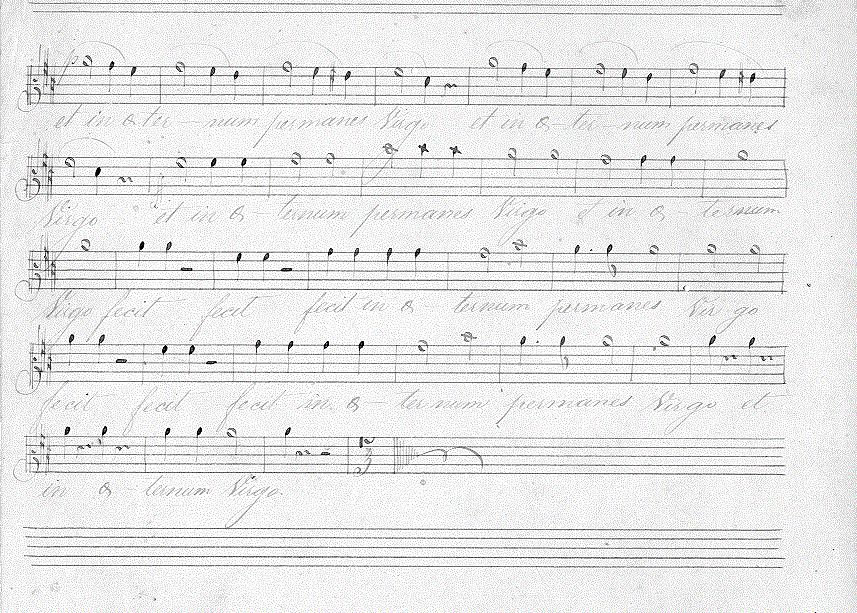 et in æ ter - num permanes Virgo et in æ - ter - num permanes
Virgo et in æ - ternum permanes Virgo et in æ - ternum
Virgo fecit fecit fecit in æ - ternum permanes Vir go
fecit fecit fecit in æ - ternum permanes Virgo et
in æ - ternum Virgo.